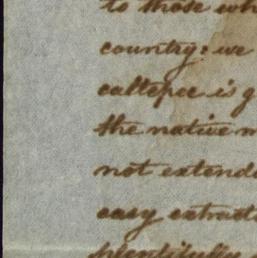 to those wh
country: we
caltepec is g
the native m
not extend
easy extract
plentifully